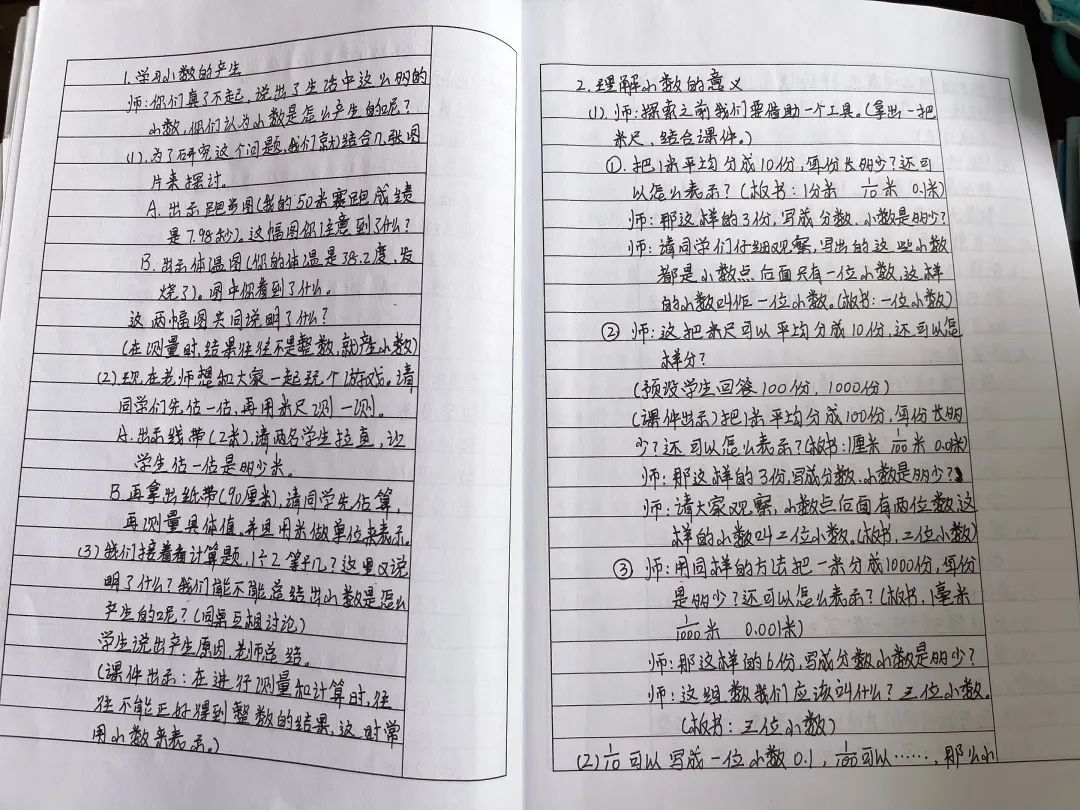 1.学习小数的产生
师:你们真了不起,说出了生活中这么多的
小数,你们认为小数是怎么产生的呢?
(1).为了研究这个问题,我们就结合几张图
片来探讨。
A.出示跑步图(我的50米赛跑成绩
是7.98秒)。这幅图你注意到了什么?
B.出示体温图(你的体温是38.2度,发
烧了)。图中你看到了什么。
这两幅图共同说明了什么?
(在测量时,结果往往不是整数,就产生小数)
(2)现在老师想和大家一起玩个游戏。请
同学们先估一估,再用米尺测一测。
A.出示线带(2米),请两名学生拉直,让
学生估一估是多少米。
B.再拿出纸带(90厘米),请同学先估算,
再测量具体值,并且用米做单位来表示。
(3)我们接着看计算题,1÷2等于几?这里又说
明了什么?我们能不能总结出小数是怎么
产生的呢?(同桌互相讨论)
学生说出产生原因,老师总结。
(课件出示:在进行测量和计算时,往
往不能正好得到整数的结果,这时常
用小数来表示。)
2.理解小数的意义
(1).师:探索之前我们要借助一个工具。(拿出一把
米尺,结合课件。)
①.把1米平均分成10份,每份长多少?还可
以怎么表示?(板书:1分米 1/10米 0.1米)
师:那这样的3份,写成分数、小数是多少?
师:请同学们仔细观察,写出的这些小数
都是小数点后面只有一位小数,这样
的小数叫作一位小数。(板书:一位小数)
② 师:这把米尺可以平均分成10份,还可以怎
样分?
(预设学生回答100份,1000份)
(课件出示)把1米平均分成100份,每份长多
少?还可以怎么表示?(板书:1厘米 1/100米 0.01米)
师:那这样的3份,写成分数、小数是多少?
师:请大家观察,小数点后面有两位数,这
样的小数叫二位小数。(板书:二位小数)
③ 师:用同样的方法把一米分成1000份,每份
是多少?还可以怎么表示?(板书:1毫米
1/1000米 0.001米)
师:那这样的6份,写成分数、小数是多少?
师:这组数我们应该叫什么?三位小数。
(板书:三位小数)
(2)1/10可以写成一位小数0.1,1/100可以……,那么小